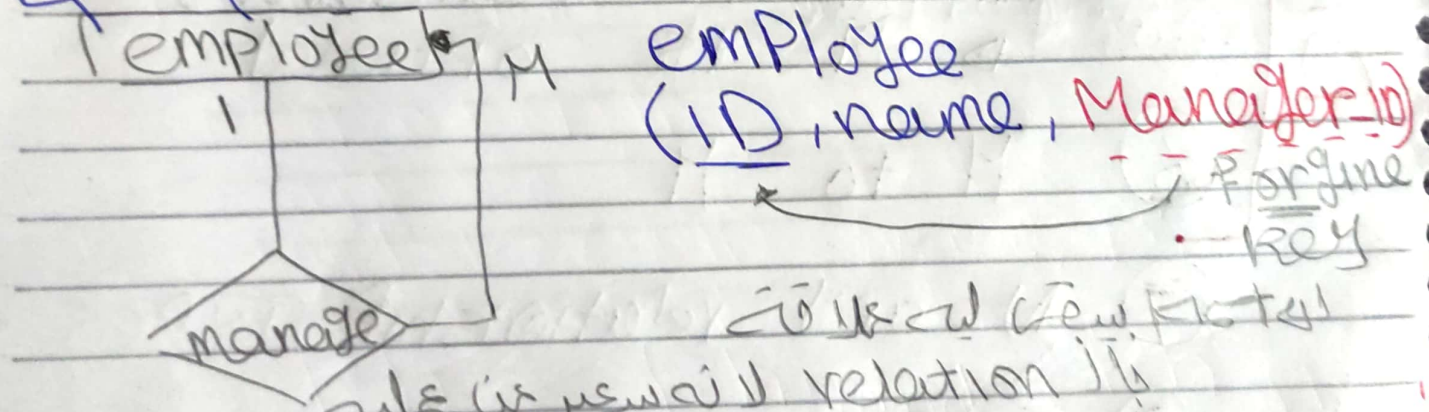 employee
M
1
manage
employee
(ID, name, Manager-ID)
Forgine
key
relation ال